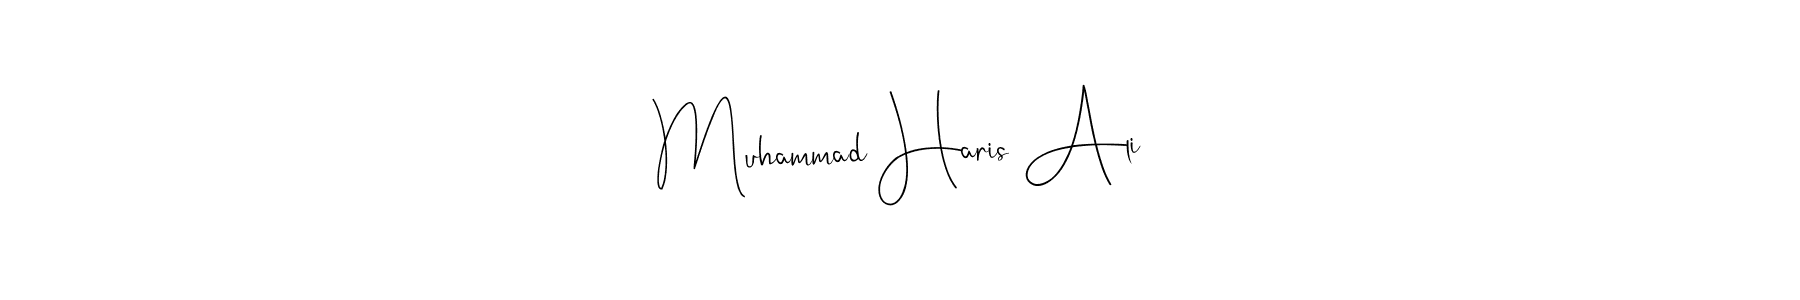 Muhammad Haris Ali